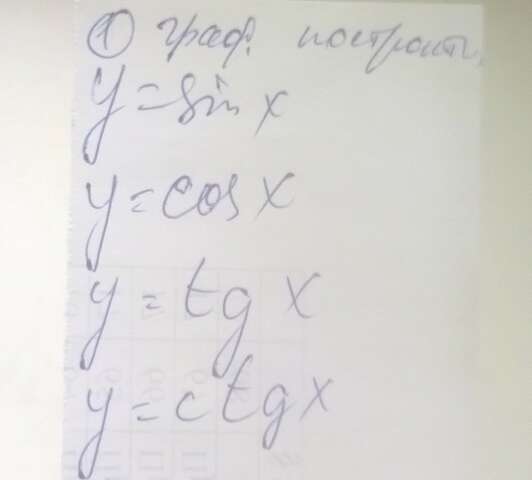 ① граф. построить.
y = sin x
y = cos x
y = tg x
y = ctg x